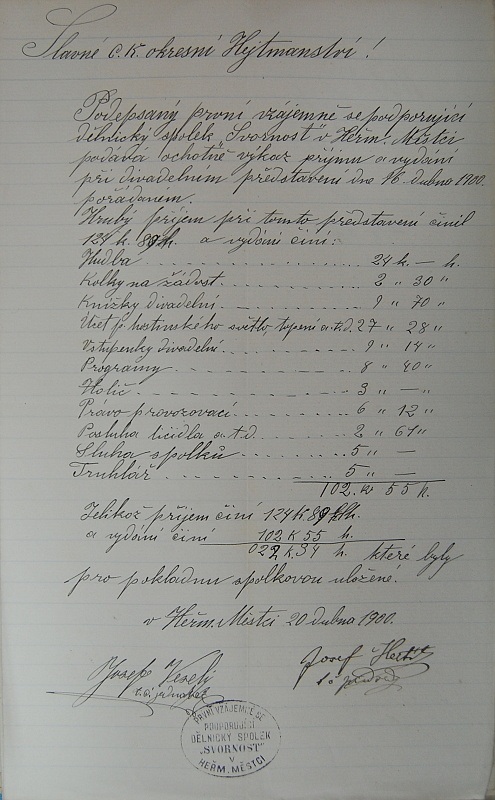 Slavné c. k. okresní Hejtmanství!
Podepsaný první vzájemně se podporující
dělnický spolek Svornost v Heřm. Městci
podává ochotně výkaz příjmu a vydání
při divadelním představení dne 16. dubna 1900.
pořádaném.
Hrubý příjem při tomto představení činil
124 k. 89 h. a vydání činí:
Hudba 24 k. — h.
Kolky na žádost 2 „ 30 „
Knížky divadelní 9 „ 70 „
Účet p. hostinského světlo topení a.t.d. 27 „ 28 „
Vstupenky divadelní 9 „ 14 „
Programy 8 „ 40 „
Holič 3 „ — „
Právo provozovací 6 „ 12 „
Posluha líčidla a.t.d. 2 „ 61 „
Sluha spolků 5 „ —
Truhlář 5 „ —
102. K 55 h.
Jelikož příjem činí 124 K. 89 h.
a vydání činí 102 K 55 h.
022 K 34 h. které byly
pro pokladnu spolkovou uložené.
v Heřm. Městci 20 dubna 1900.
Josef Veselý
t. č. jednatel
Josef
t. č. předseda
PRVNÍ VZÁJEMNĚ SE
PODPORUJÍCÍ
DĚLNICKÝ SPOLEK
„SVORNOST"
V
HEŘM. MĚSTCI